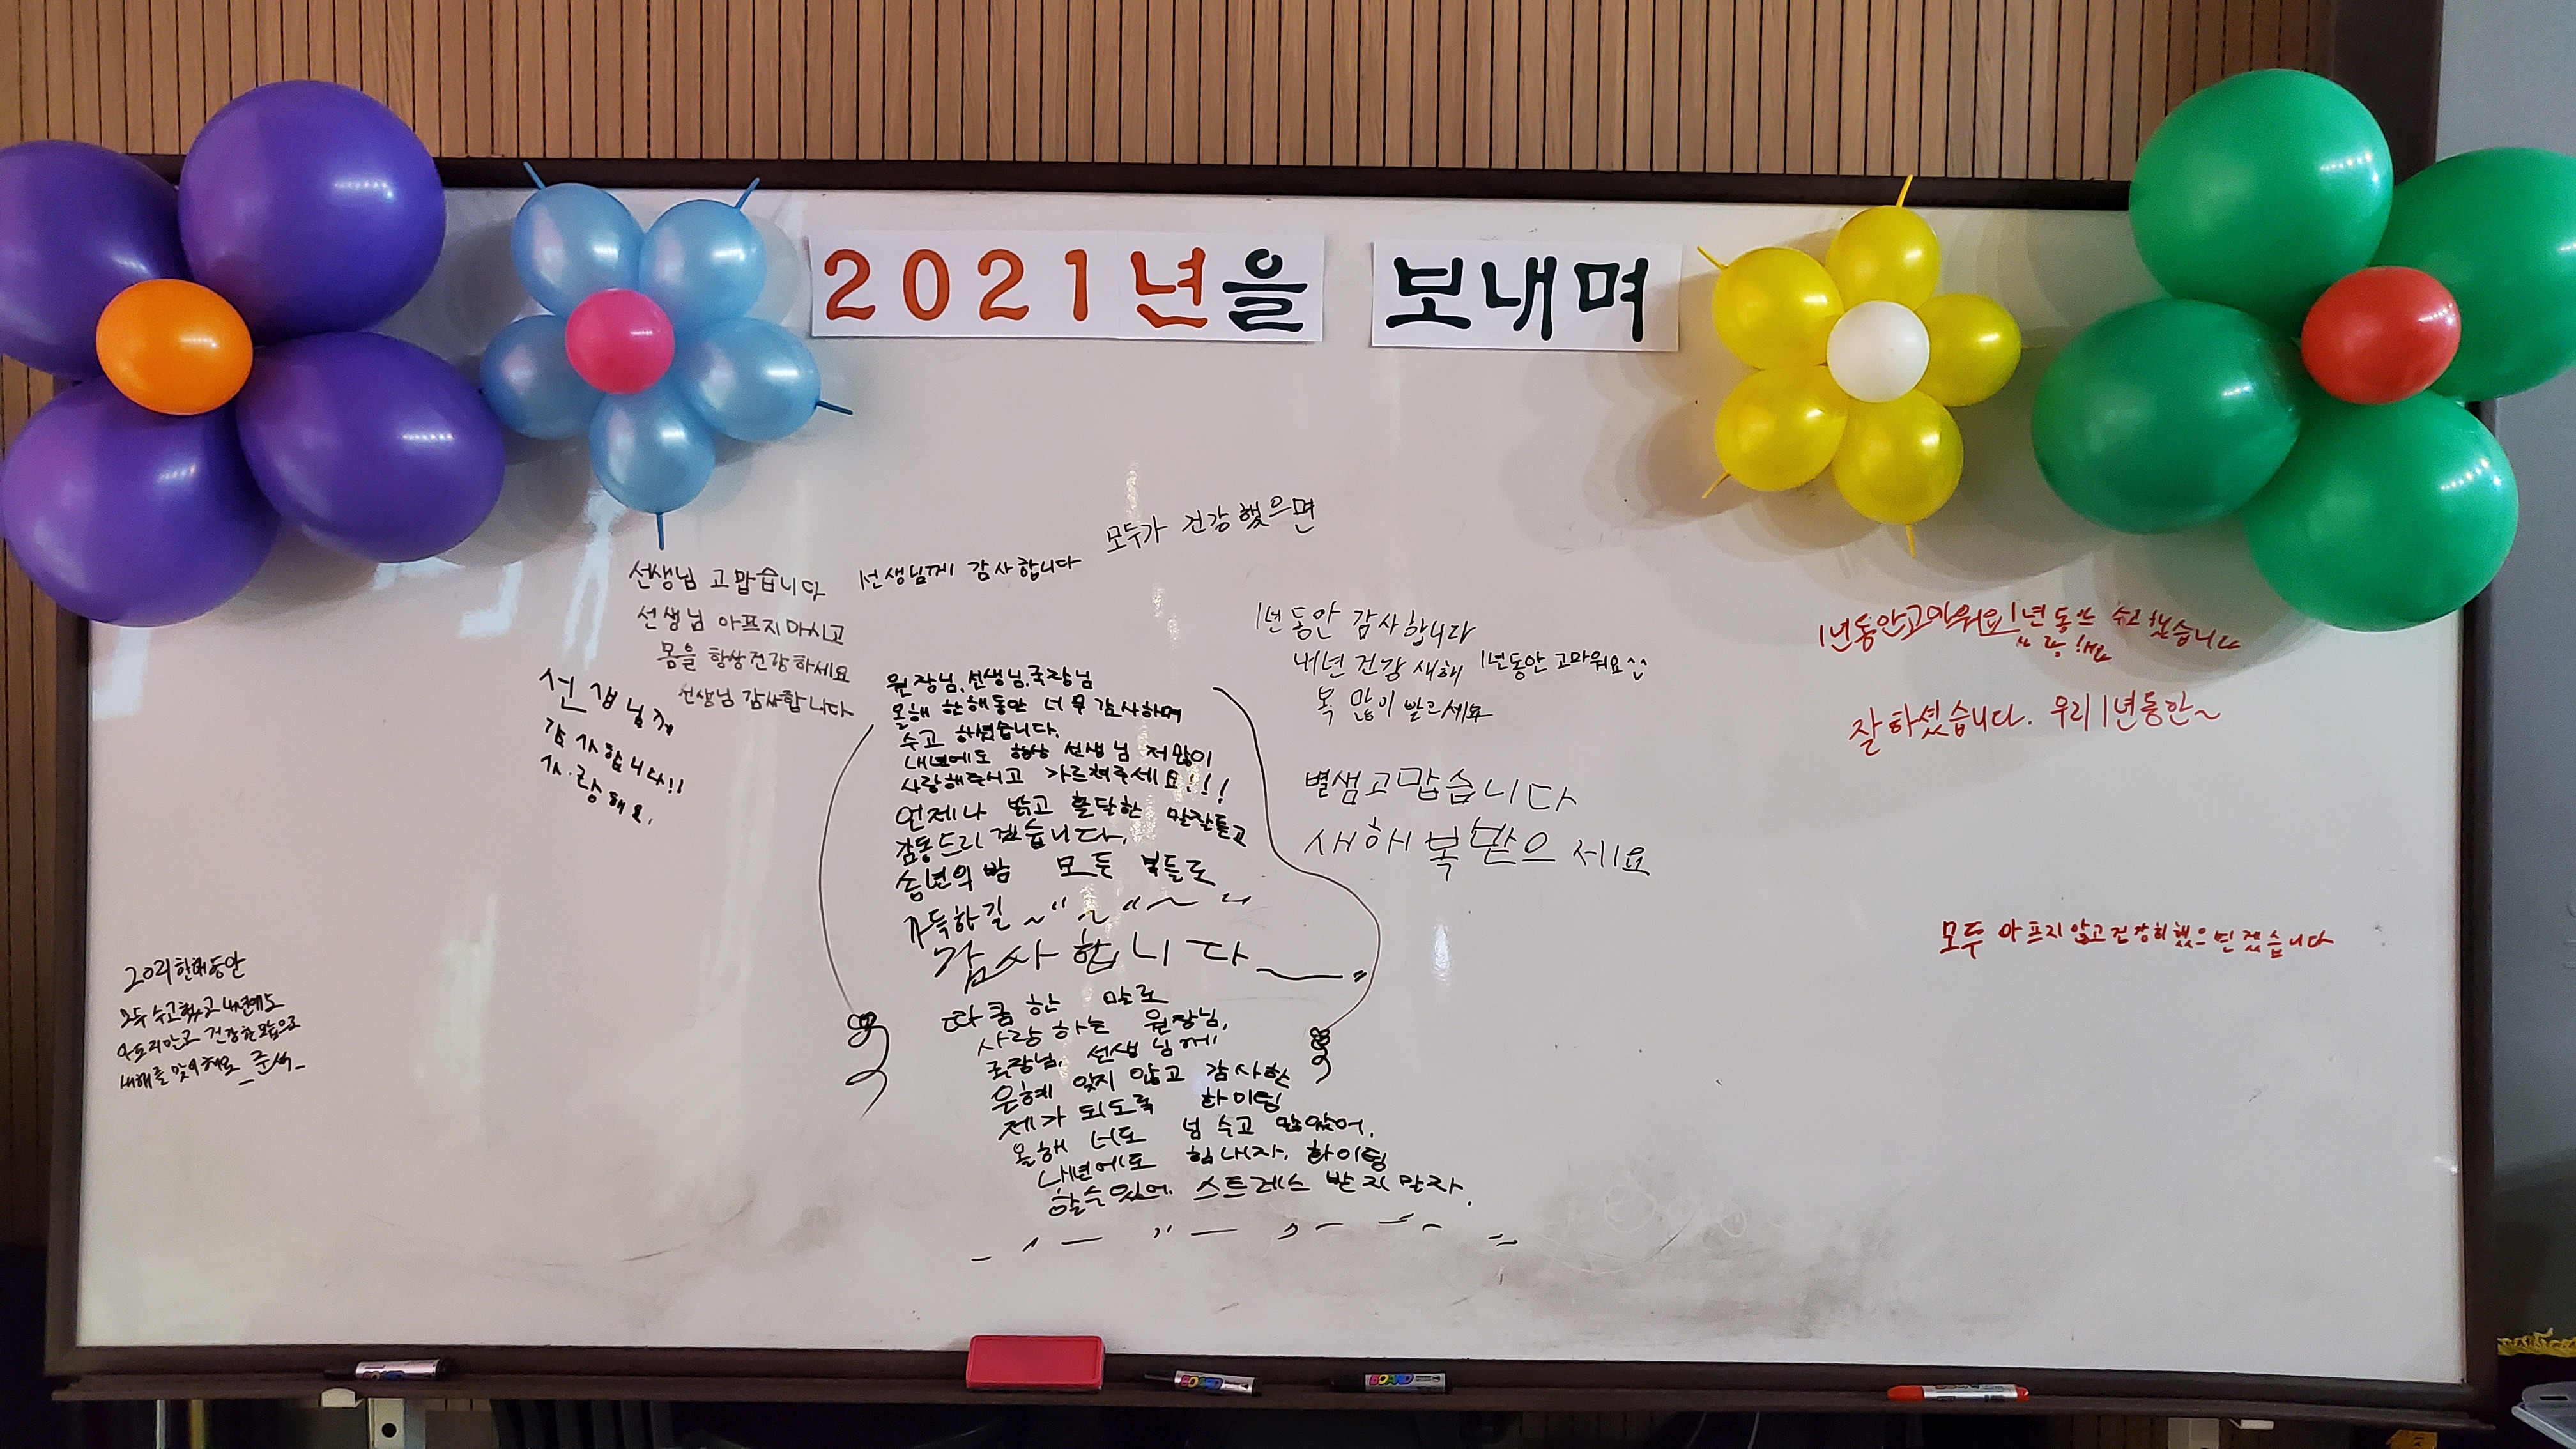 2021년을 보내며
모두가 건강했으면
선생님 고맙습니다
선생님 아프지마시고
몸을 항상건강하세요
선생님 감사합니다
선생님께 감사합니다
선생님께
감사합니다!!
사랑해요.
원장님, 선생님, 국장님
올해 한해동안 너무 감사하며
수고 하셨습니다.
내년에도 항상 선생님 저 많이
사랑해주시고 가르쳐주세요!!!
언제나 밝고 활달한 말잘듣고
감동드리겠습니다.
송년의 밤 모든 분들로
가득하길~
감사합니다
따쿰한 말로
사랑하는 원장님,
국장님, 선생님께
은혜 잊지 않고 감사한
제가 되도록 화이팅
올해 너도 넘 수고 많았어.
내년에도 힘내자. 화이팅
할수있어. 스트레스 받지말자.
1년동안 감사합니다
내년 건강 새해
복 많이 발르세요
1년동안 고마워요^^
별샘고맙습니다
새해복받으세요
1년동안고마워요
1년동안 수고했습니다
사랑해요
잘하셨습니다. 우리1년동안~
모두 아프지않고건강히했으면겠습니다
2021한해동안
모두 수고했고 내년에도
건강한모습으로
새해를 맞이해요
BOARD
BOARD